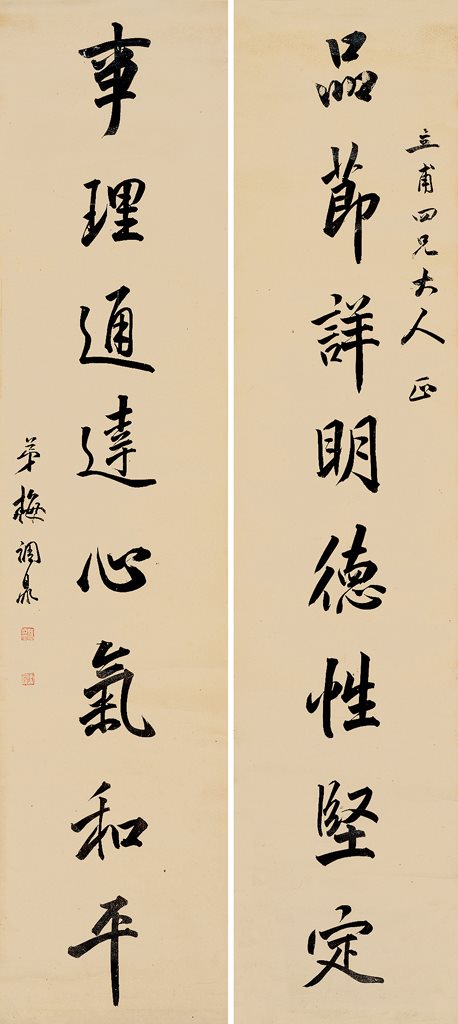 立甫四兄大人正
品節詳明德性堅定
事理通達心氣和平
弟梅調鼎